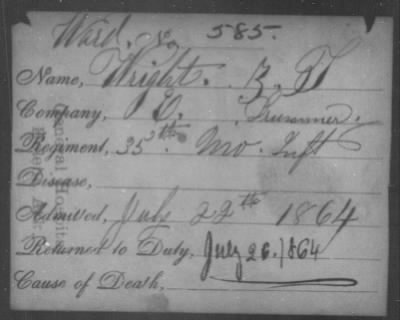 Ward, No 585.
Name, Wright. Z. T
Company, E. Drummer.
Regiment, 35th Mo. Inft
Disease,
Admitted, July 22th 1864
Returned to Duty, July 26. 1864
Cause of Death,